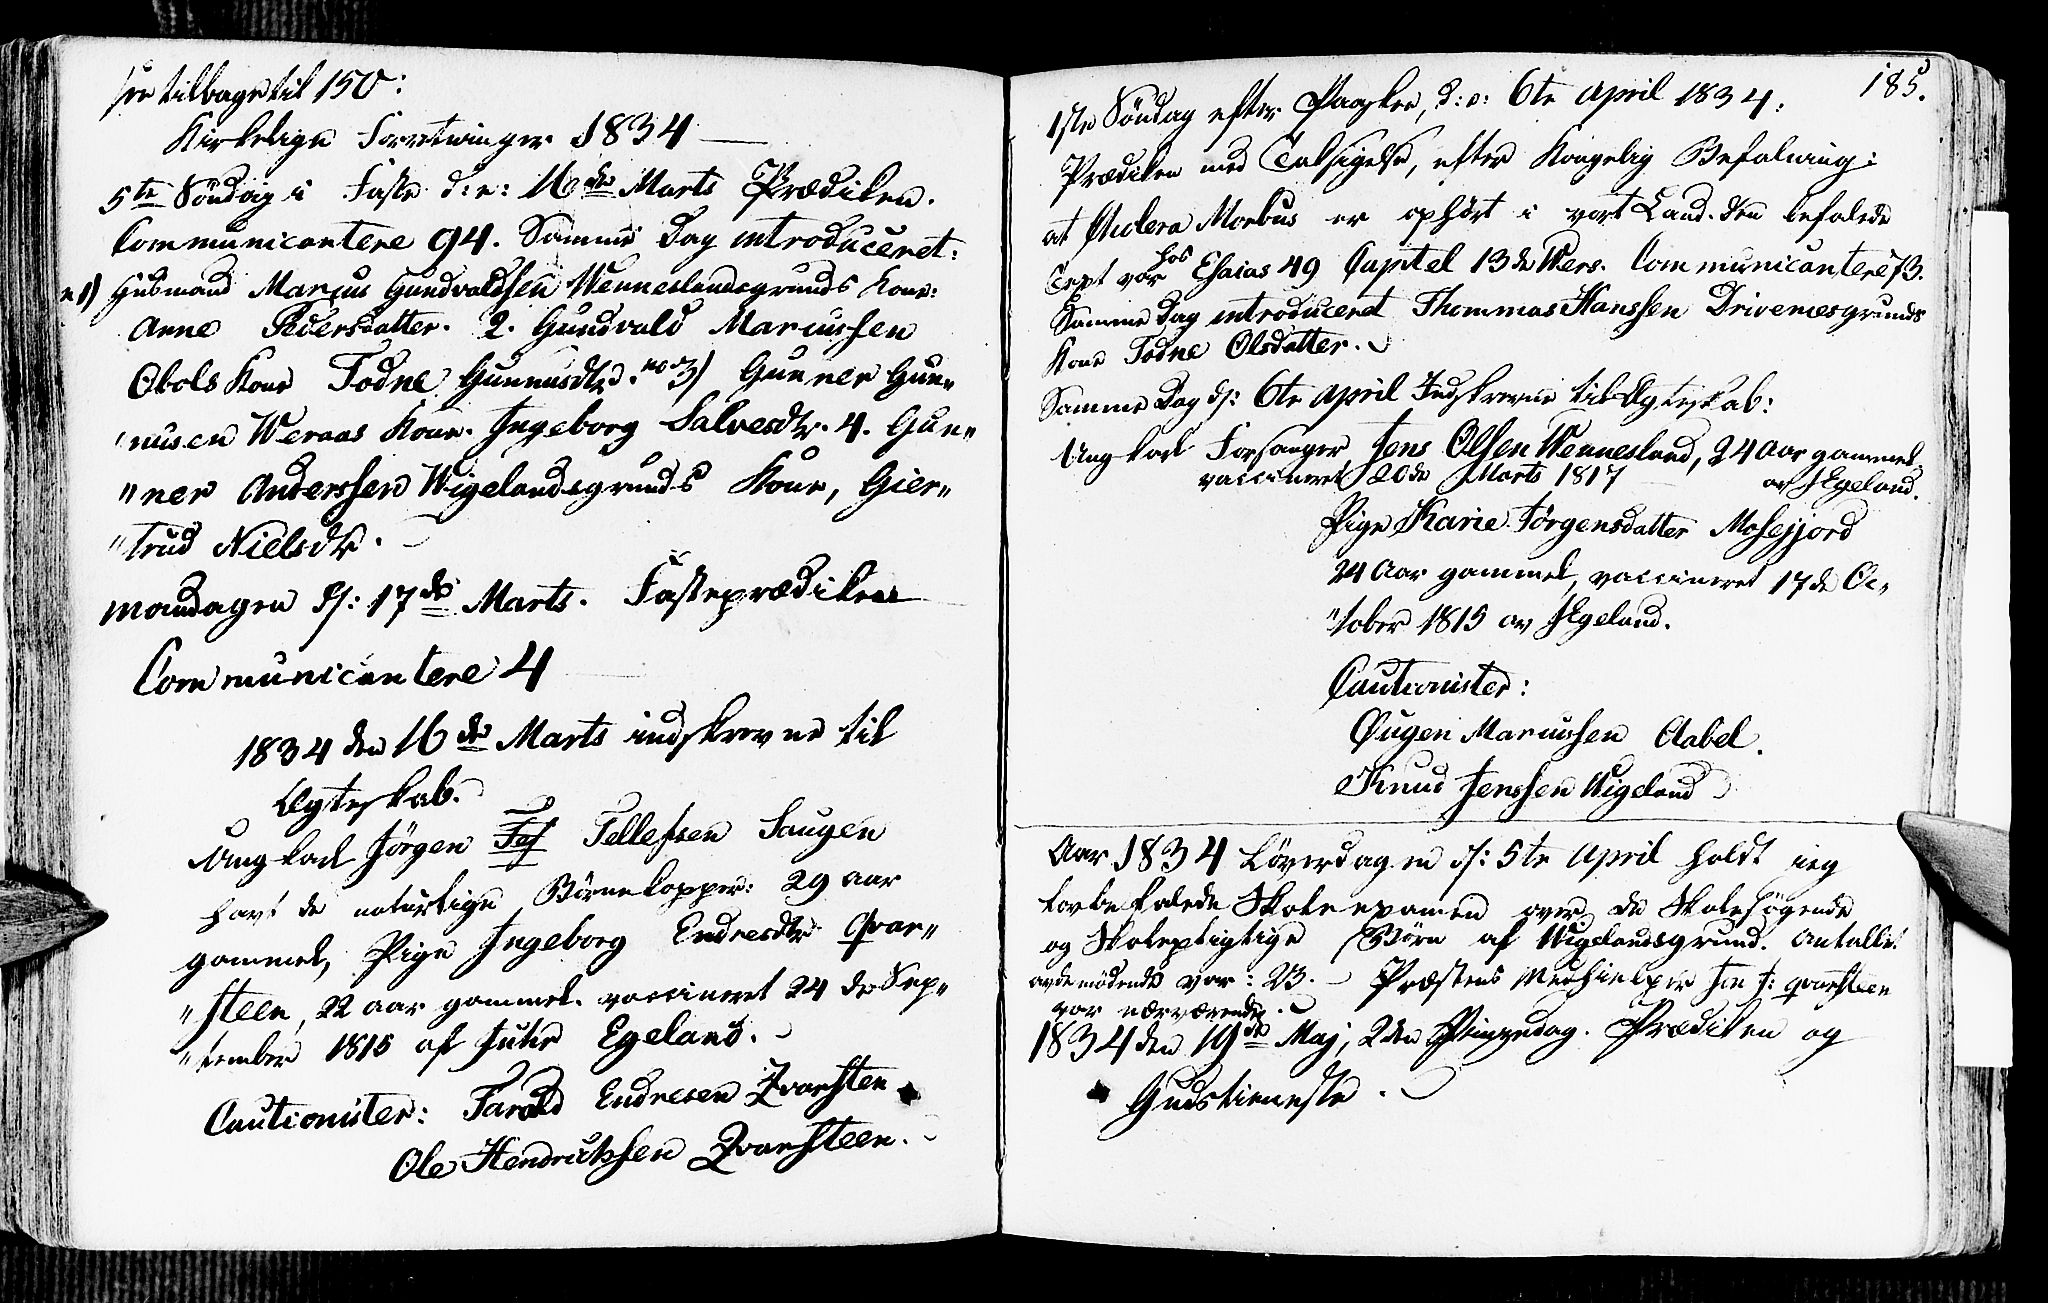 see tilbage til 150:
Kirkelige Forretninger 1834
5te Söndag i Faste d: e: 16de Marts Prædiken.
Communicantere 94. Samme Dag introduceret:
n 1) Huusmand Marcus Gundvaldsen Wenneslandsgrunds Kone:
Anne Pedersdatter. 2. Gundvald Marcussen
Obols Kone Todne Gunnusdtr. no 3) Gunner Gun„
„nusen Weraas Kone. Ingeborg Salvesdtr. 4. Gun„
„ner Anderssen Wigelandsgrunds Kone, Gier„
„trud Nielsdtr.
Mandagen d: 17de Marts. Fasteprædiken
Communicantere 4
1834 den 16de Marts indskrevne til
Ægteskab.
Ungkarl Jörgen Tef Tellefsen Saugen
havt de naturlige Börnekopper: 29 aar
gammel, Pige Ingeborg Endresdtr Qvar„
„steen, 22 aar gammel. vaccineret 24de Sep„
„tember 1815 af Juhr Egeland.
Cautionister: Tarald Endresen Qvarsten
Ole Hendrichsen Qvarsteen.
185.
1ste Söndag efter Paaske, d: e: 6te April 1834:
Prædiken med Taksigelse, efter Kongelig Befalning:
at Cholera Morbus er ophört i vort Land. Den befalede
hos
Text var Esaias 49 Capitel 13de Vers. Communicantere 73.
Samme Dag introduceret Thommas Hanssen Drivenesgrunds
Kone Todne Olsdatter.
Samme Dag d: 6te April Indskrevne til Ægteskab:
Ungkarl Forsanger Jens Olsen Wennesland, 24 Aar gammel
vaccineret 20de Marts 1817 av JEgeland.
Pige Karie Jörgensdatter Mosefjord
24 Aar gammel, vaccineret 17de Oc„
„tober 1815 av JEgeland.
Cautionister:
Öugen Marcussen Aabel.
Knud Jenssen Wigeland
Aar 1834 Löverdagen d: 5te April holdt jeg
lovbefalede Skoleexamen over de Skolesögende
og Skolepligtige Börn af Wigelandsgrund. Antallet
av de mödende var: 23. Præstens Medhielper J: Qvarsteen
var nærværende.
1834 den 19de Maj, 2den Pintsedag. Prædiken og
Gudstieneste.